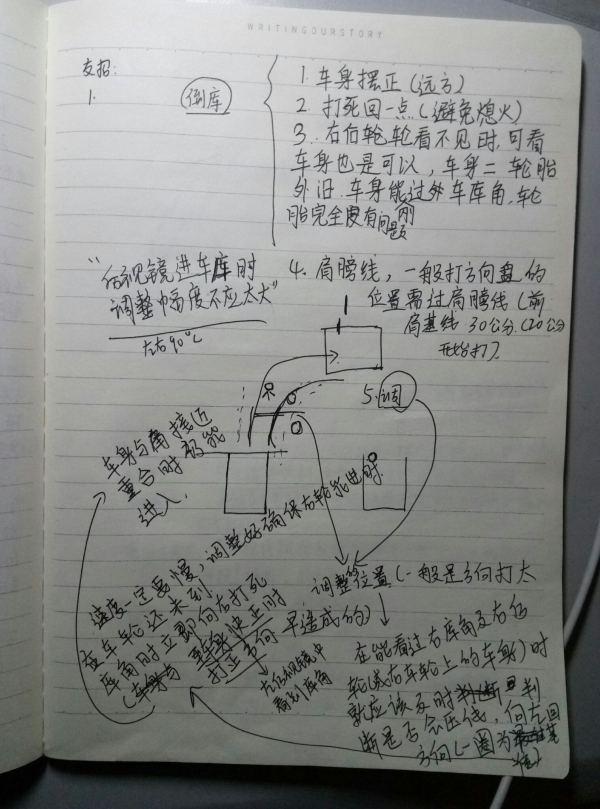 WRITINGOURSTORY
友招:
1.
倒库
1. 车身摆正(远方)
2. 打死回一点(避免熄火)
3. 右后轮轮看不见时,可看
车身也是可以,车身二轮胎
外旧.车身能过外车库角,轮
胎完全没有问题
刚
"后视镜进车库时
调整幅度不应太大"
左右90℃
4. 肩膀线,一般打方向盘的
位置需过肩膀线(前
肩基线 30公分.(20公分
开始打).
5. 调
车身与角接近
重合时都能
进入.
速度一定要慢,调整好确保右轮能进时
在车轮还未到
库角时立即向右打死
(车身与 车身快正时
打正方向
左后视镜中
看到库角
调整位置(一般是方向打太
早造成的)
在能看过右库角及右后
轮(或右车轮上的车身)时
就应该及时 判
断是否会压线,向左回
方向(一圈为